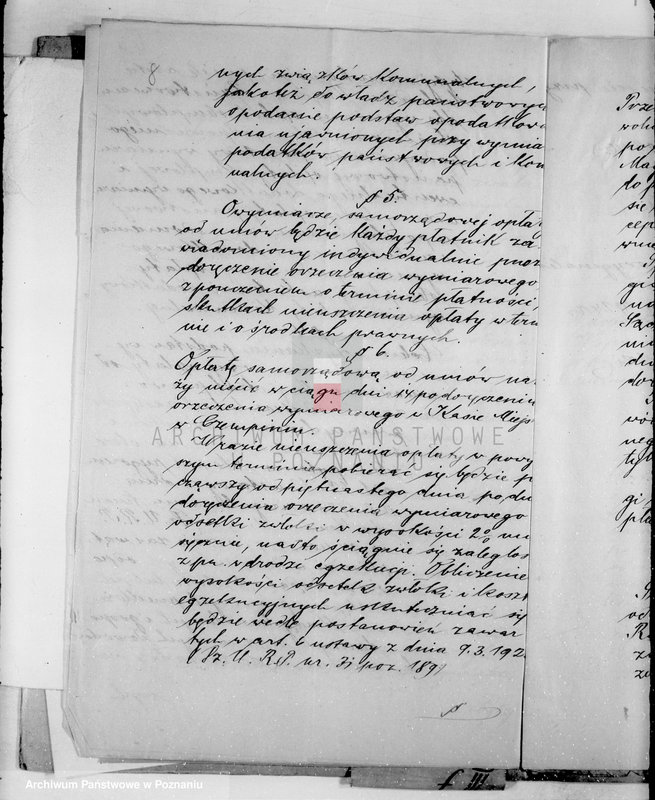 8
nych związków komunalnych,
jakoteż do władz państwowych
o podanie podstaw opodatkowa
nia ujawnionych przy wymia
podatków państwowych i kom
nalnych.
§ 5.
O wymiarze samorządowej opłat
od umów będzie każdy płatnik za
wiadomiony indywidualnie przez
doręczenie orzeczenia wymiarowego
z pouczeniem o terminie płatności,
skutkach nieuiszczenia opłaty w term
nie i o środkach prawnych.
§ 6.
Opłatę samorządową od umów na
ży uiścić w ciągu dni 14 po doręczeniu
orzeczenia wymiarowego w Kasie Miejs
w Czempiniu.
W razie nieuiszczenia opłaty w powy
szym terminie pobierać się będzie p
cząwszy od piętnastego dnia po dn
doręczenia orzeczenia wymiarowego
odsetki zwłoki w wysokości 2% mi
sięcznie, nadto ściągnie się zaległoś
z pn. w drodze egzekucji. Obliczenie
wysokości odsetek zwłoki i koszt
egzekucyjnych uskuteczniać się
będzie wedle postanowień zawar
tych w art. 6 ustawy z dnia 9.3.192
(Dz. U. R.P. nr. 31 poz. 189)
§
ARCHIWUM PAŃSTWOWE
W POZNANIU
Archiwum Państwowe w Poznaniu